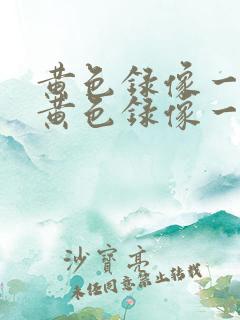 黄色録像一
黄色録像一
沙寳亮
未经同意禁止转载